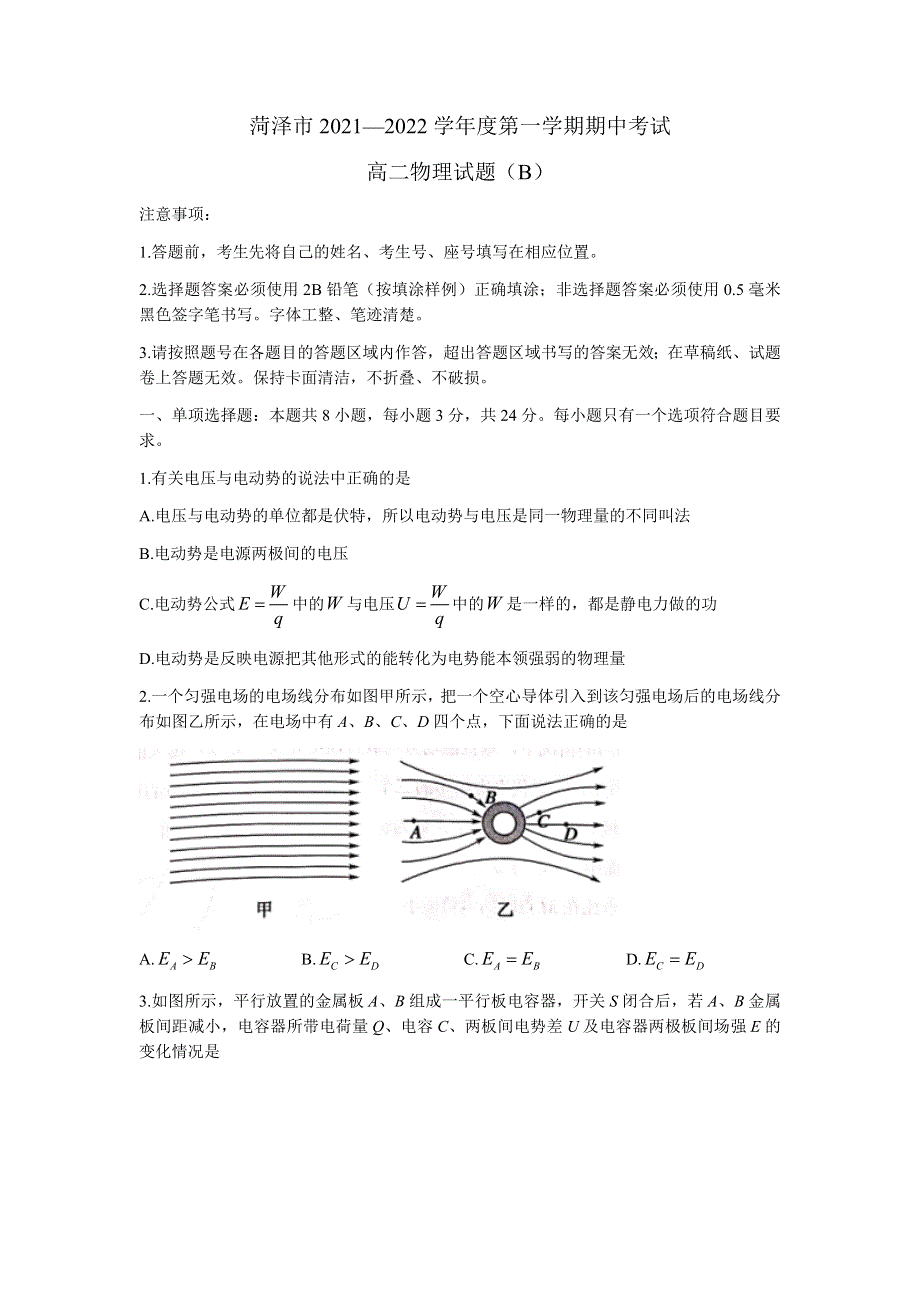 菏泽市 2021—2022 学年度第一学期期中考试
高二物理试题（B）
注意事项：
1.答题前，考生先将自己的姓名、考生号、座号填写在相应位置。
2.选择题答案必须使用 2B 铅笔（按填涂样例）正确填涂；非选择题答案必须使用 0.5 毫米
黑色签字笔书写。字体工整、笔迹清楚。
3.请按照题号在各题目的答题区域内作答，超出答题区域书写的答案无效；在草稿纸、试题
卷上答题无效。保持卡面清洁，不折叠、不破损。
一、单项选择题：本题共 8 小题，每小题 3 分，共 24 分。每小题只有一个选项符合题目要
求。
1.有关电压与电动势的说法中正确的是
A.电压与电动势的单位都是伏特，所以电动势与电压是同一物理量的不同叫法
B.电动势是电源两极间的电压
C.电动势公式 E = W/q 中的 W 与电压 U = W/q 中的 W 是一样的，都是静电力做的功
D.电动势是反映电源把其他形式的能转化为电势能本领强弱的物理量
2.一个匀强电场的电场线分布如图甲所示，把一个空心导体引入到该匀强电场后的电场线分
布如图乙所示，在电场中有 A、B、C、D 四个点，下面说法正确的是
A B C D
甲 乙
A. E_A > E_B B. E_C > E_D C. E_A = E_B D. E_C = E_D
3.如图所示，平行放置的金属板 A、B 组成一平行板电容器，开关 S 闭合后，若 A、B 金属
板间距减小，电容器所带电荷量 Q、电容 C、两板间电势差 U 及电容器两极板间场强 E 的
变化情况是